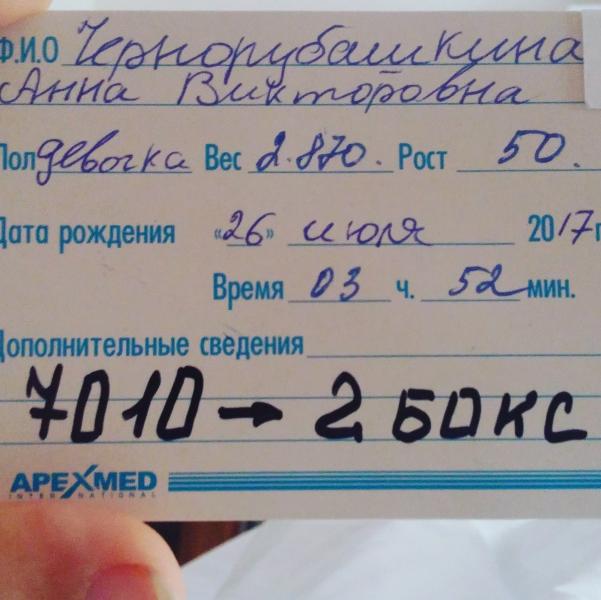 Ф.И.О Чернорубашкина
Анна Викторовна
Пол девочка Вес 2.870. Рост 50.
Дата рождения «26» июля 2017г
Время 03 ч. 52 мин.
Дополнительные сведения
7010 → 2 БОКС
APEXMED
INTERNATIONAL